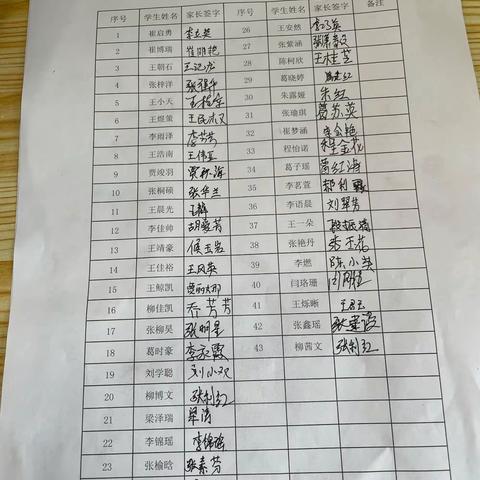 序号 学生姓名 家长签字 序号 学生姓名 家长签字 备注
1 崔启勇 李立英 26 王安然 李巧英
2 崔博瑞 崔明艳 27 张紫涵
3 王朝石 王记龙 28 陈柯欣 王桂芝
4 张梓洋 张维华 29 葛晓婷
5 王小天 30 朱露嫒 朱红
6 王煜策 31 张瑜琪 葛苏英
7 李雨泽 李芳芳 32 崔梦涵
8 王浩南 王伟玉 33 程怡诺 程金花
9 贾竣羽 34 葛子瑶 葛红海
10 张桐硕 张华兰 35 李茗萱
11 王晨光 王静 36 李语晨 刘翠芳
12 李佳帅 胡爱芳 37 王一朵
13 王靖豪 侯玉岩 38 张艳丹 李玉花
14 王佳裕 王风英 39 李燃 陈小美
15 王鲸凯 40 闫珞珊
16 柳佳凯 乔芳芳 41 王烁晰
17 张柳昊 张明星 42 张鑫瑶
18 葛时豪 李永霞 43 柳茜文 张利红
19 刘学聪 刘小双
20 柳博文 张利红
21 梁泽瑞 梁涛
22 李锦瑶 李锦瑶
23 张榆晗 张素芬